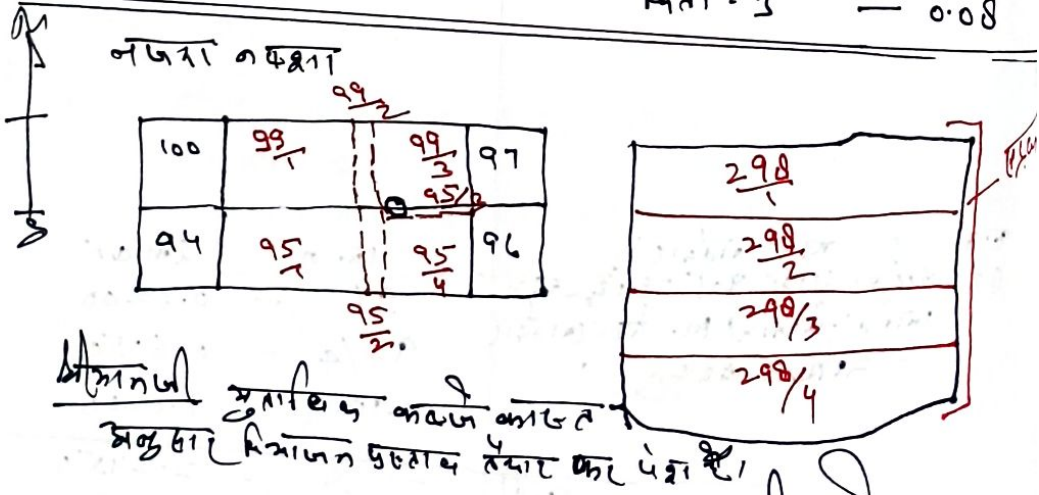 — 0.08
नजरी नक्शा
99/2
100 99/1 99/3 97
95/3
94 95/1 95/4 96
95/2
298/1
298/2
298/3
298/4
श्रीमानजी मुताबिक कब्जे काश्त
अनुसार विभाजन प्रस्ताव तैयार कर पेश है।